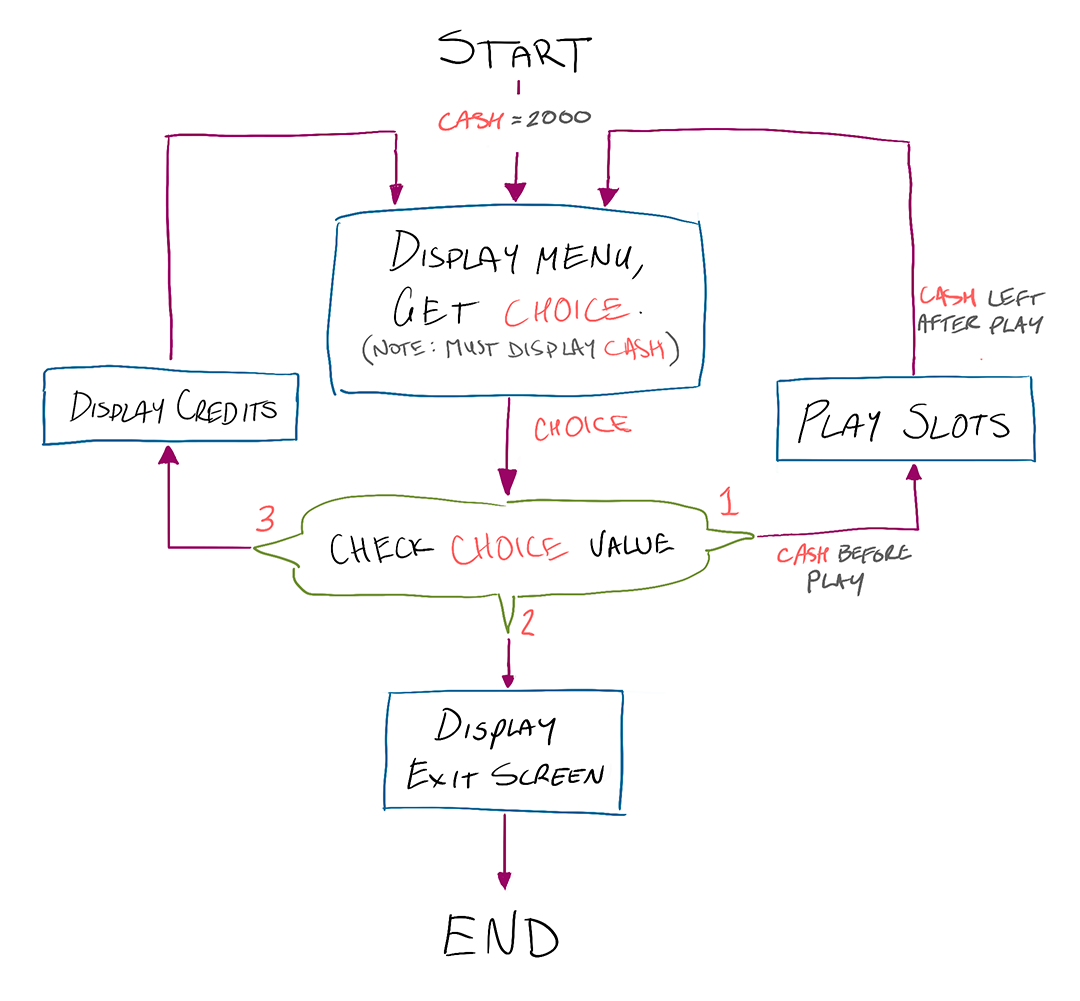 START
CASH = 2000
DISPLAY MENU,
GET CHOICE.
(NOTE: MUST DISPLAY CASH)
CASH LEFT
AFTER PLAY
DISPLAY CREDITS
PLAY SLOTS
CHOICE
3
1
CHECK CHOICE VALUE
CASH BEFORE
PLAY
2
DISPLAY
EXIT SCREEN
END